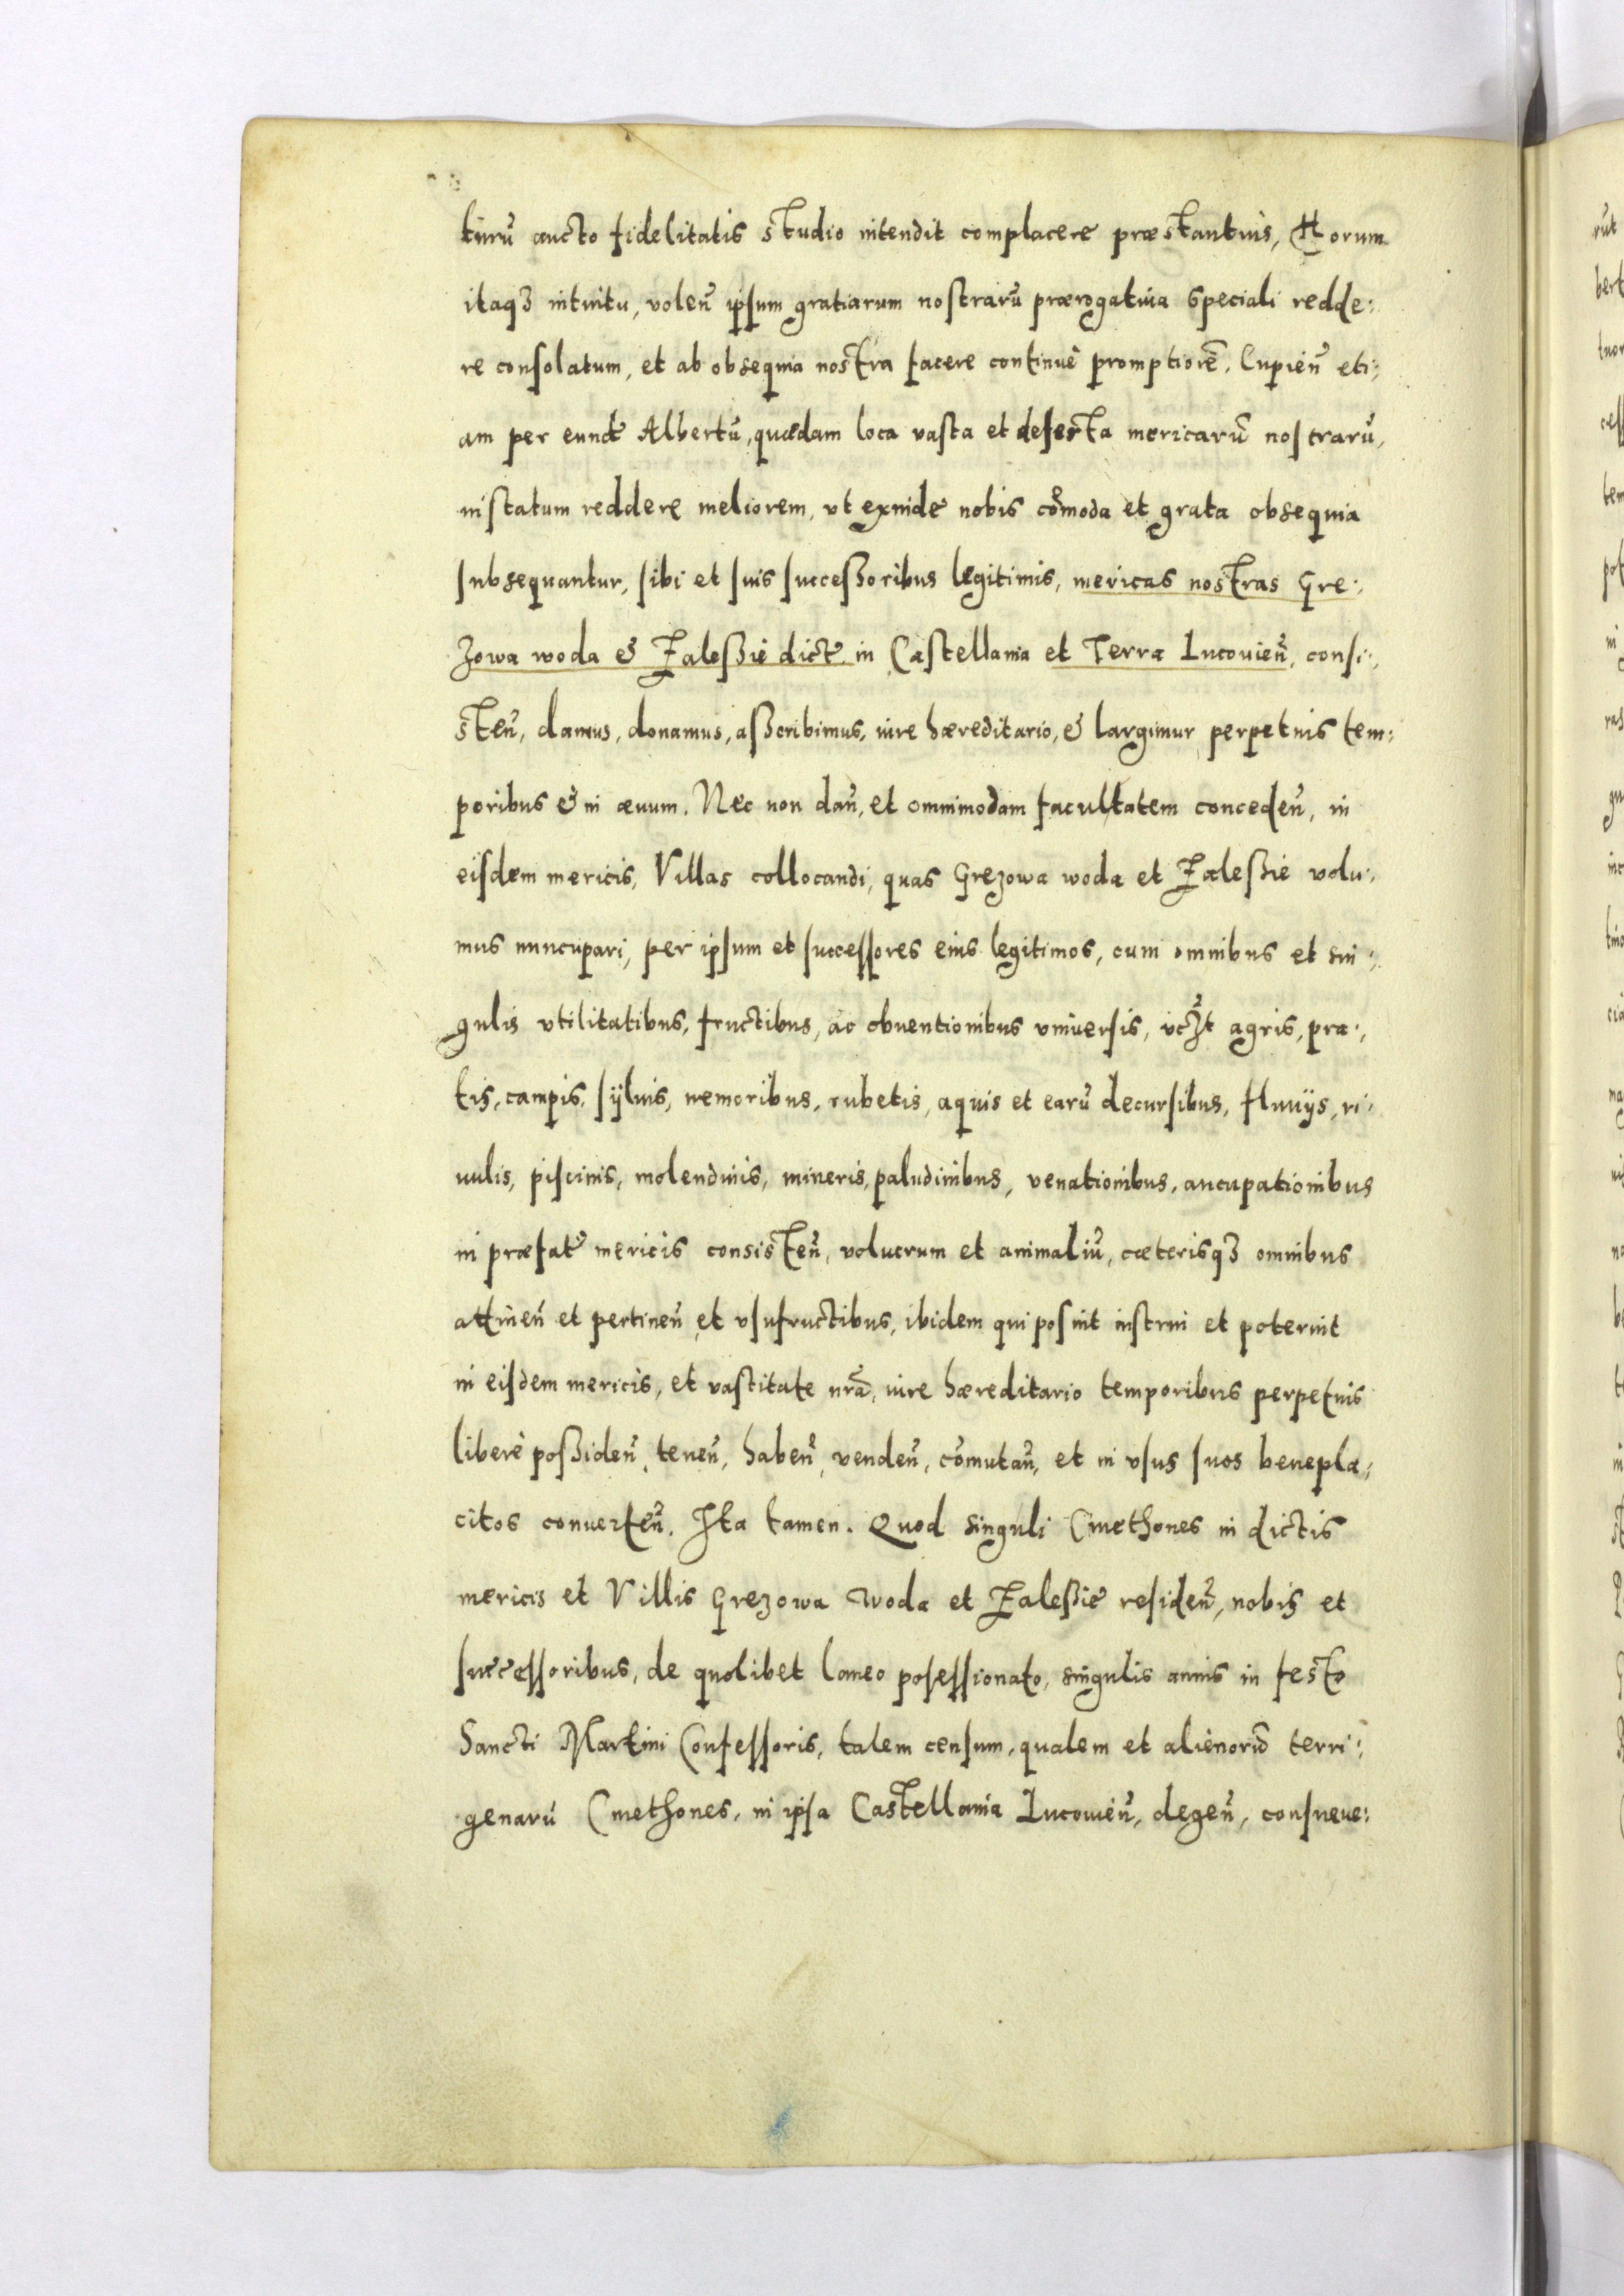 turū aucto fidelitatis studio intendit complacere præstantius, Horum
itaqȝ intuitu, voleñ ipsum gratiarum nostrarū prærogatiua speciali redde:
re consolatum, et ab obsequia nostra facere continuè promptiorē. Cupieñ eti:
am per eundē Albertū, quædam loca vasta et deserta mericarū nostrarū,
in statum reddere meliorem, vt exinde nobis cōmoda et grata obsequia
subsequantur, sibi et suis successoribus legitimis, mericas nostras Gre:
zowa woda & Zaleßie dict in Castellania et Terra Lucouieñ, consi:
steñ, damus, donamus, aßcribimus, iure hæreditario, & largimur perpetuis tem:
poribus & in æuum. Nec non dañ, et omnimodam facultatem concedeñ, in
eisdem mericis, Villas collocandi, quas Grezowa woda et Zaleßie volu:
mus nuncupari, per ipsum et successores eius legitimos, cum omnibus et sin:
gulis vtilitatibus, fructibus, ac obuentionibus vniuersis, vcȝt agris, pra:
tis, campis, syluis, nemoribus, rubetis, aquis et earū decursibus, fluuijs, ri:
uulis, piscinis, molendinis, mineris, paludinibus, venationibus, aucupationibus
in præfat mericis consisteñ, volucrum et animaliū, cæterisqȝ omnibus
attineñ et pertineñ et vsufructibus, ibidem qui posint instrui et poterint
in eisdem mericis, et vastitate nrā, iure hæreditario temporibus perpetuis
liberè poßideñ, teneñ, habeñ, vendeñ, cōmutañ, et in vsus suos benepla:
citos conuerteñ. Ita tamen. Quod singuli Cmethones in dictis
mericis et Villis Grezowa woda et Zaleßie resideñ, nobis et
successoribus, de quolibet laneo posessionato, singulis annis in festo
Sancti Martini Confessoris, talem censum, qualem et alienorū terri:
genarū Cmethones, in ipsa Castellania Lucouieñ, degeñ, consueue: